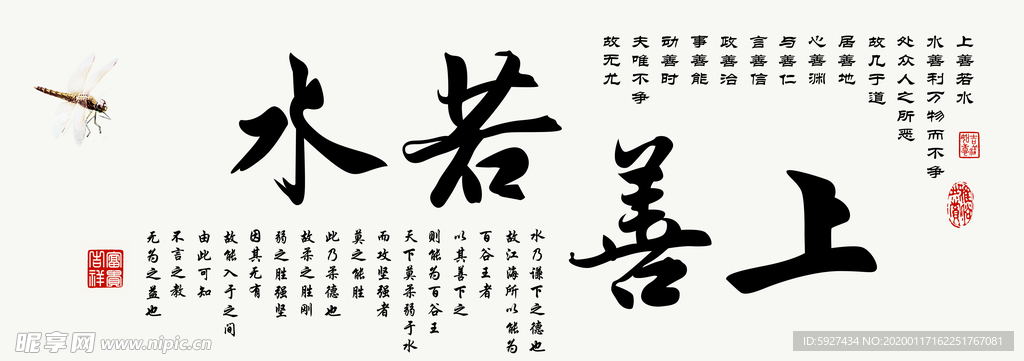 上善若水
上善若水
水善利万物而不争
处众人之所恶
故几于道
居善地
心善渊
与善仁
言善信
政善治
事善能
动善时
夫唯不争
故无尤
水乃谦下之德也
故江海所以能为
百谷王者
以其善下之
则能为百谷王
天下莫柔弱于水
而攻坚强者
莫之能胜
此乃柔德也
故柔之胜刚
弱之胜强坚
因其无有
故能入于之间
由此可知
不言之教
无为之益也
吉祥
富贵
吉祥
雅俗共赏
昵享网 www.nipic.cn
ID:5927434 NO:20200117162251767081